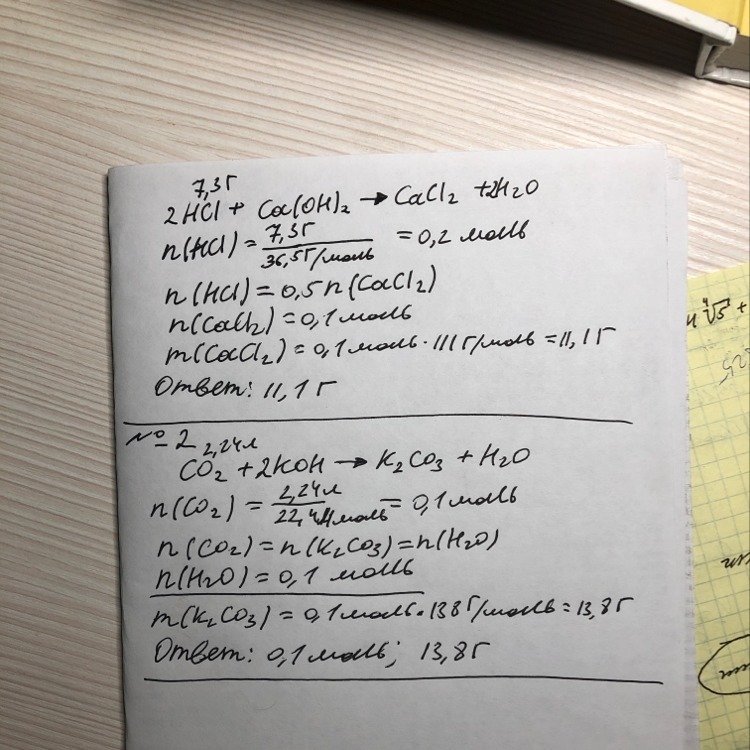 7,3г
2HCl + Ca(OH)₂ → CaCl₂ + 2H₂O
n(HCl) = 7,3г / 36,5г/моль = 0,2 моль
n(HCl) = 0,5n(CaCl₂)
n(CaCl₂) = 0,1 моль
m(CaCl₂) = 0,1 моль · 111 г/моль = 11,1г
Ответ: 11,1г
№ 2
2,24л
CO₂ + 2KOH → K₂CO₃ + H₂O
n(CO₂) = 2,24л / 22,4л/моль = 0,1 моль
n(CO₂) = n(K₂CO₃) = n(H₂O)
n(H₂O) = 0,1 моль
m(K₂CO₃) = 0,1 моль · 138 г/моль = 13,8г
Ответ: 0,1 моль; 13,8г